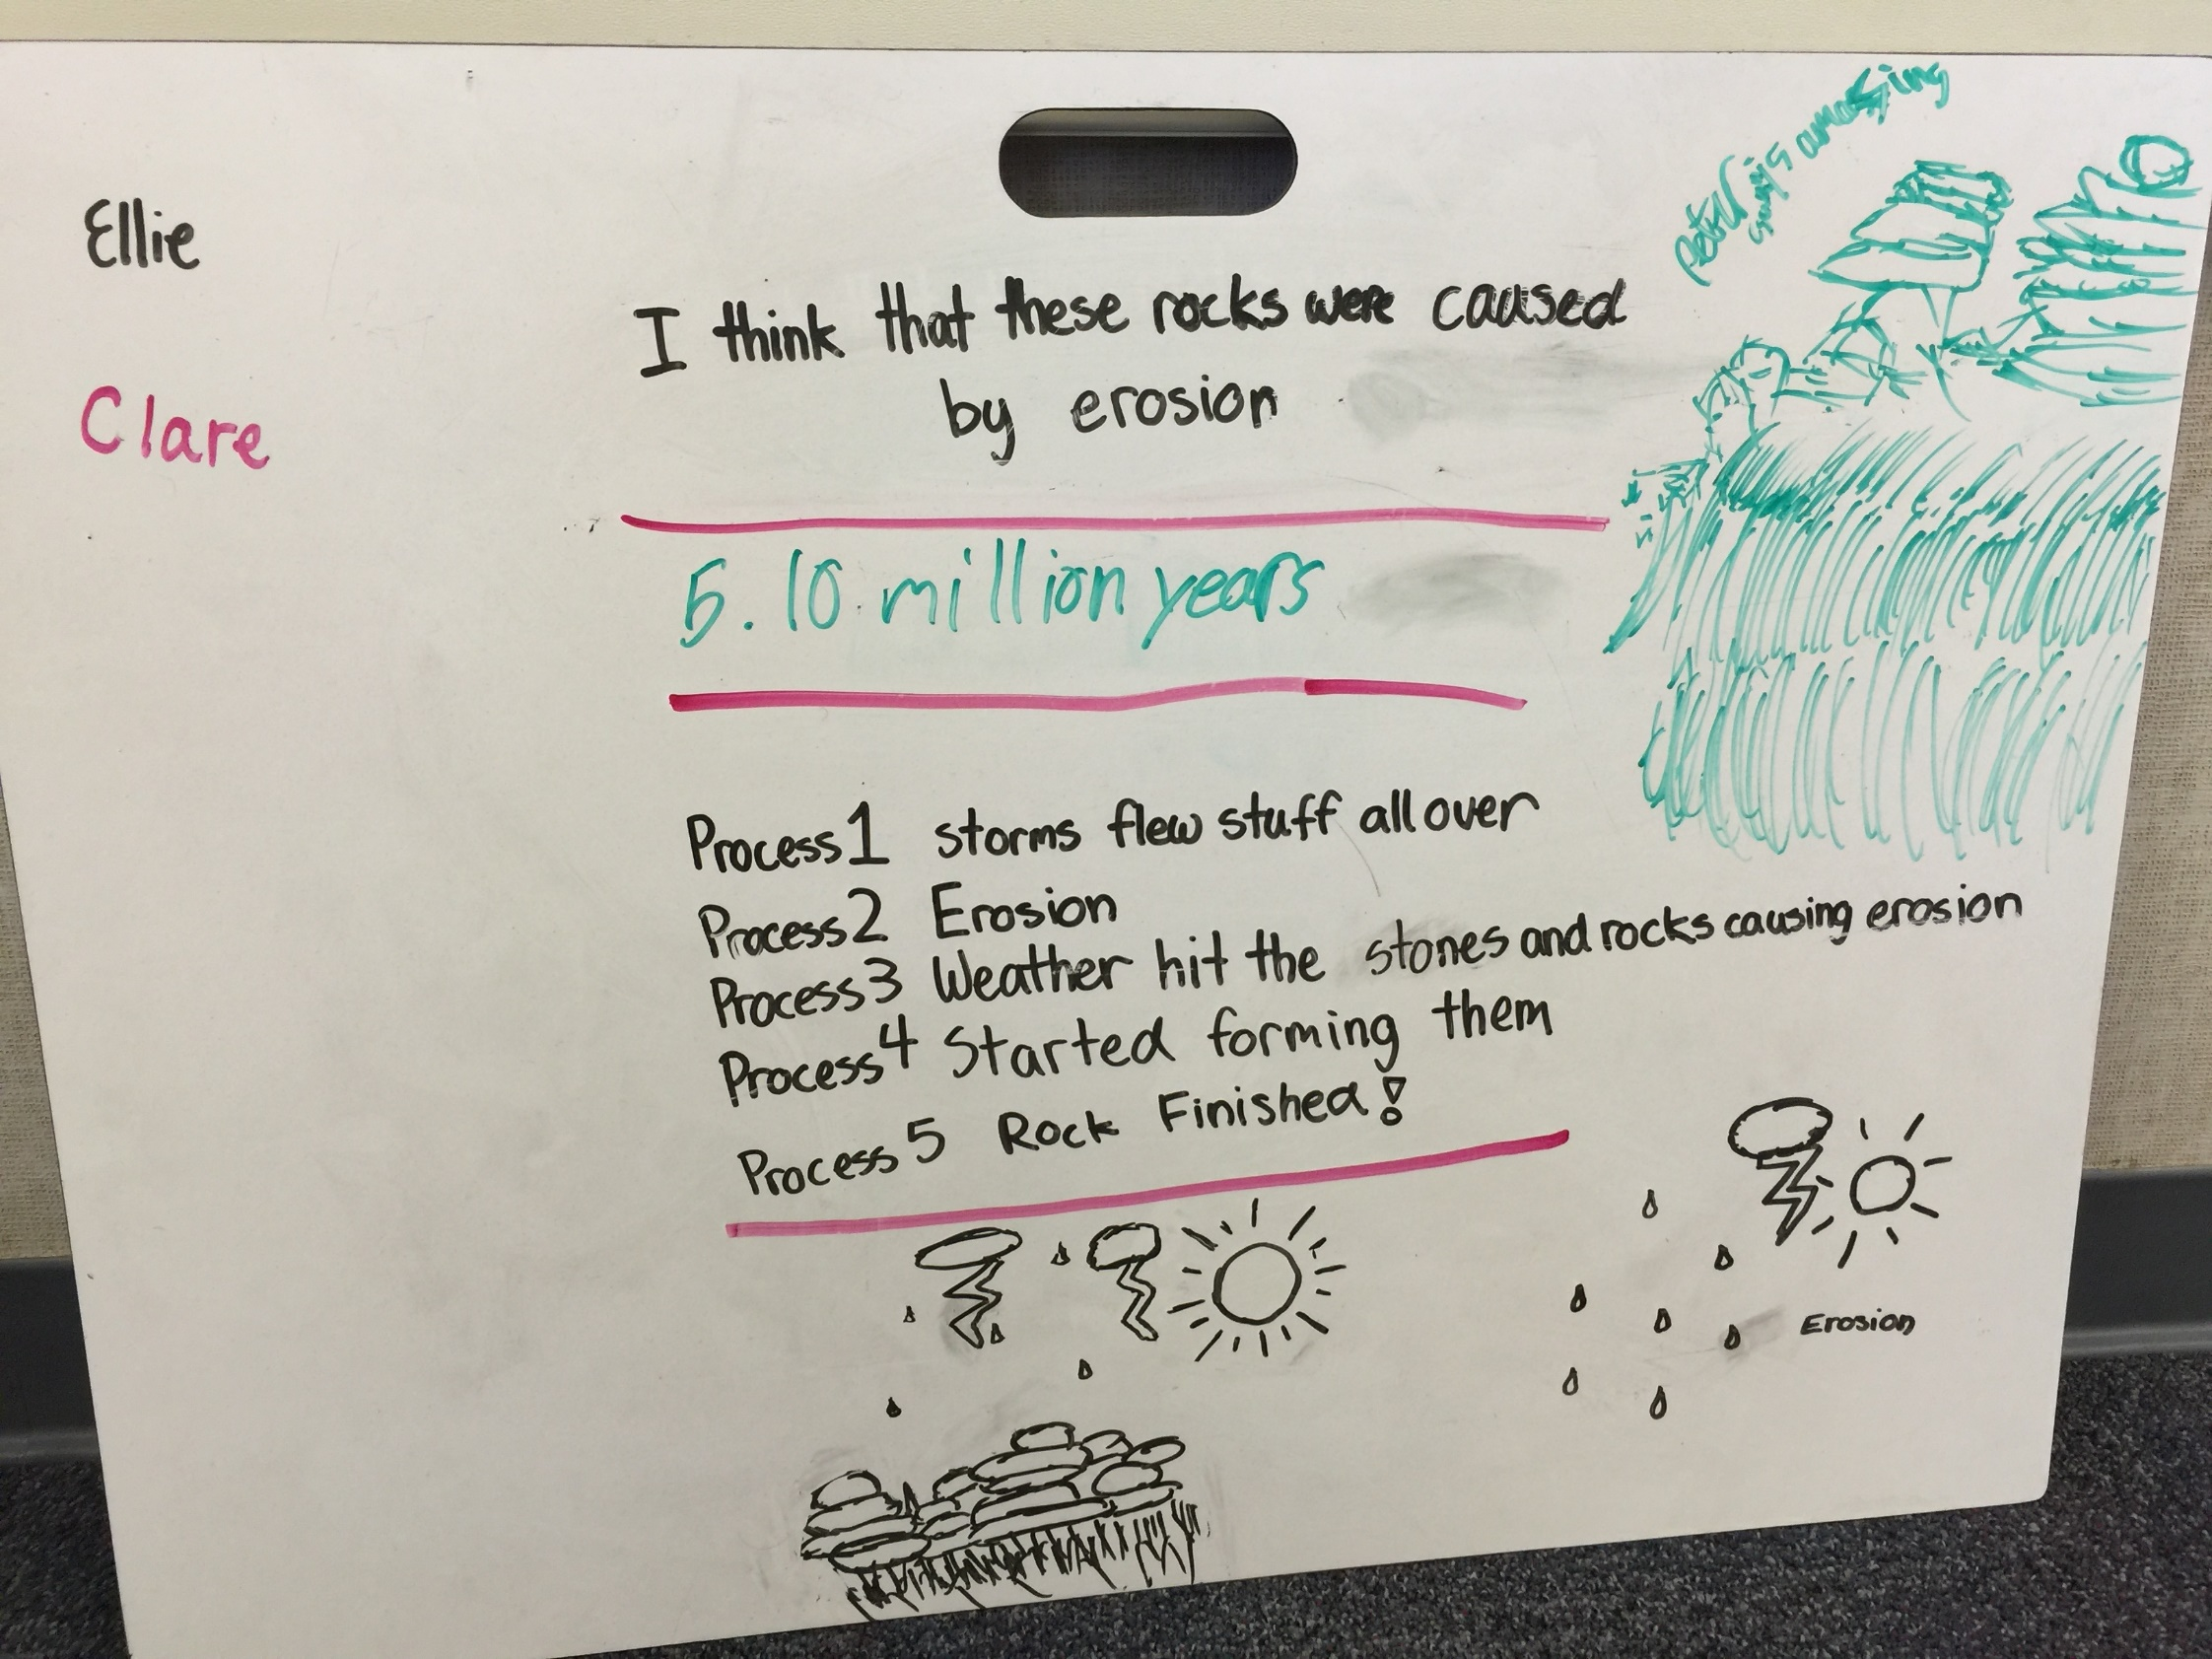 Ellie
Clare
I think that these rocks were caused
by erosion
5. 10 million years
Process 1 storms flew stuff all over
Process 2 Erosion
Process 3 Weather hit the stones and rocks causing erosion
Process 4 Started forming them
Process 5 Rock Finished!
Erosion